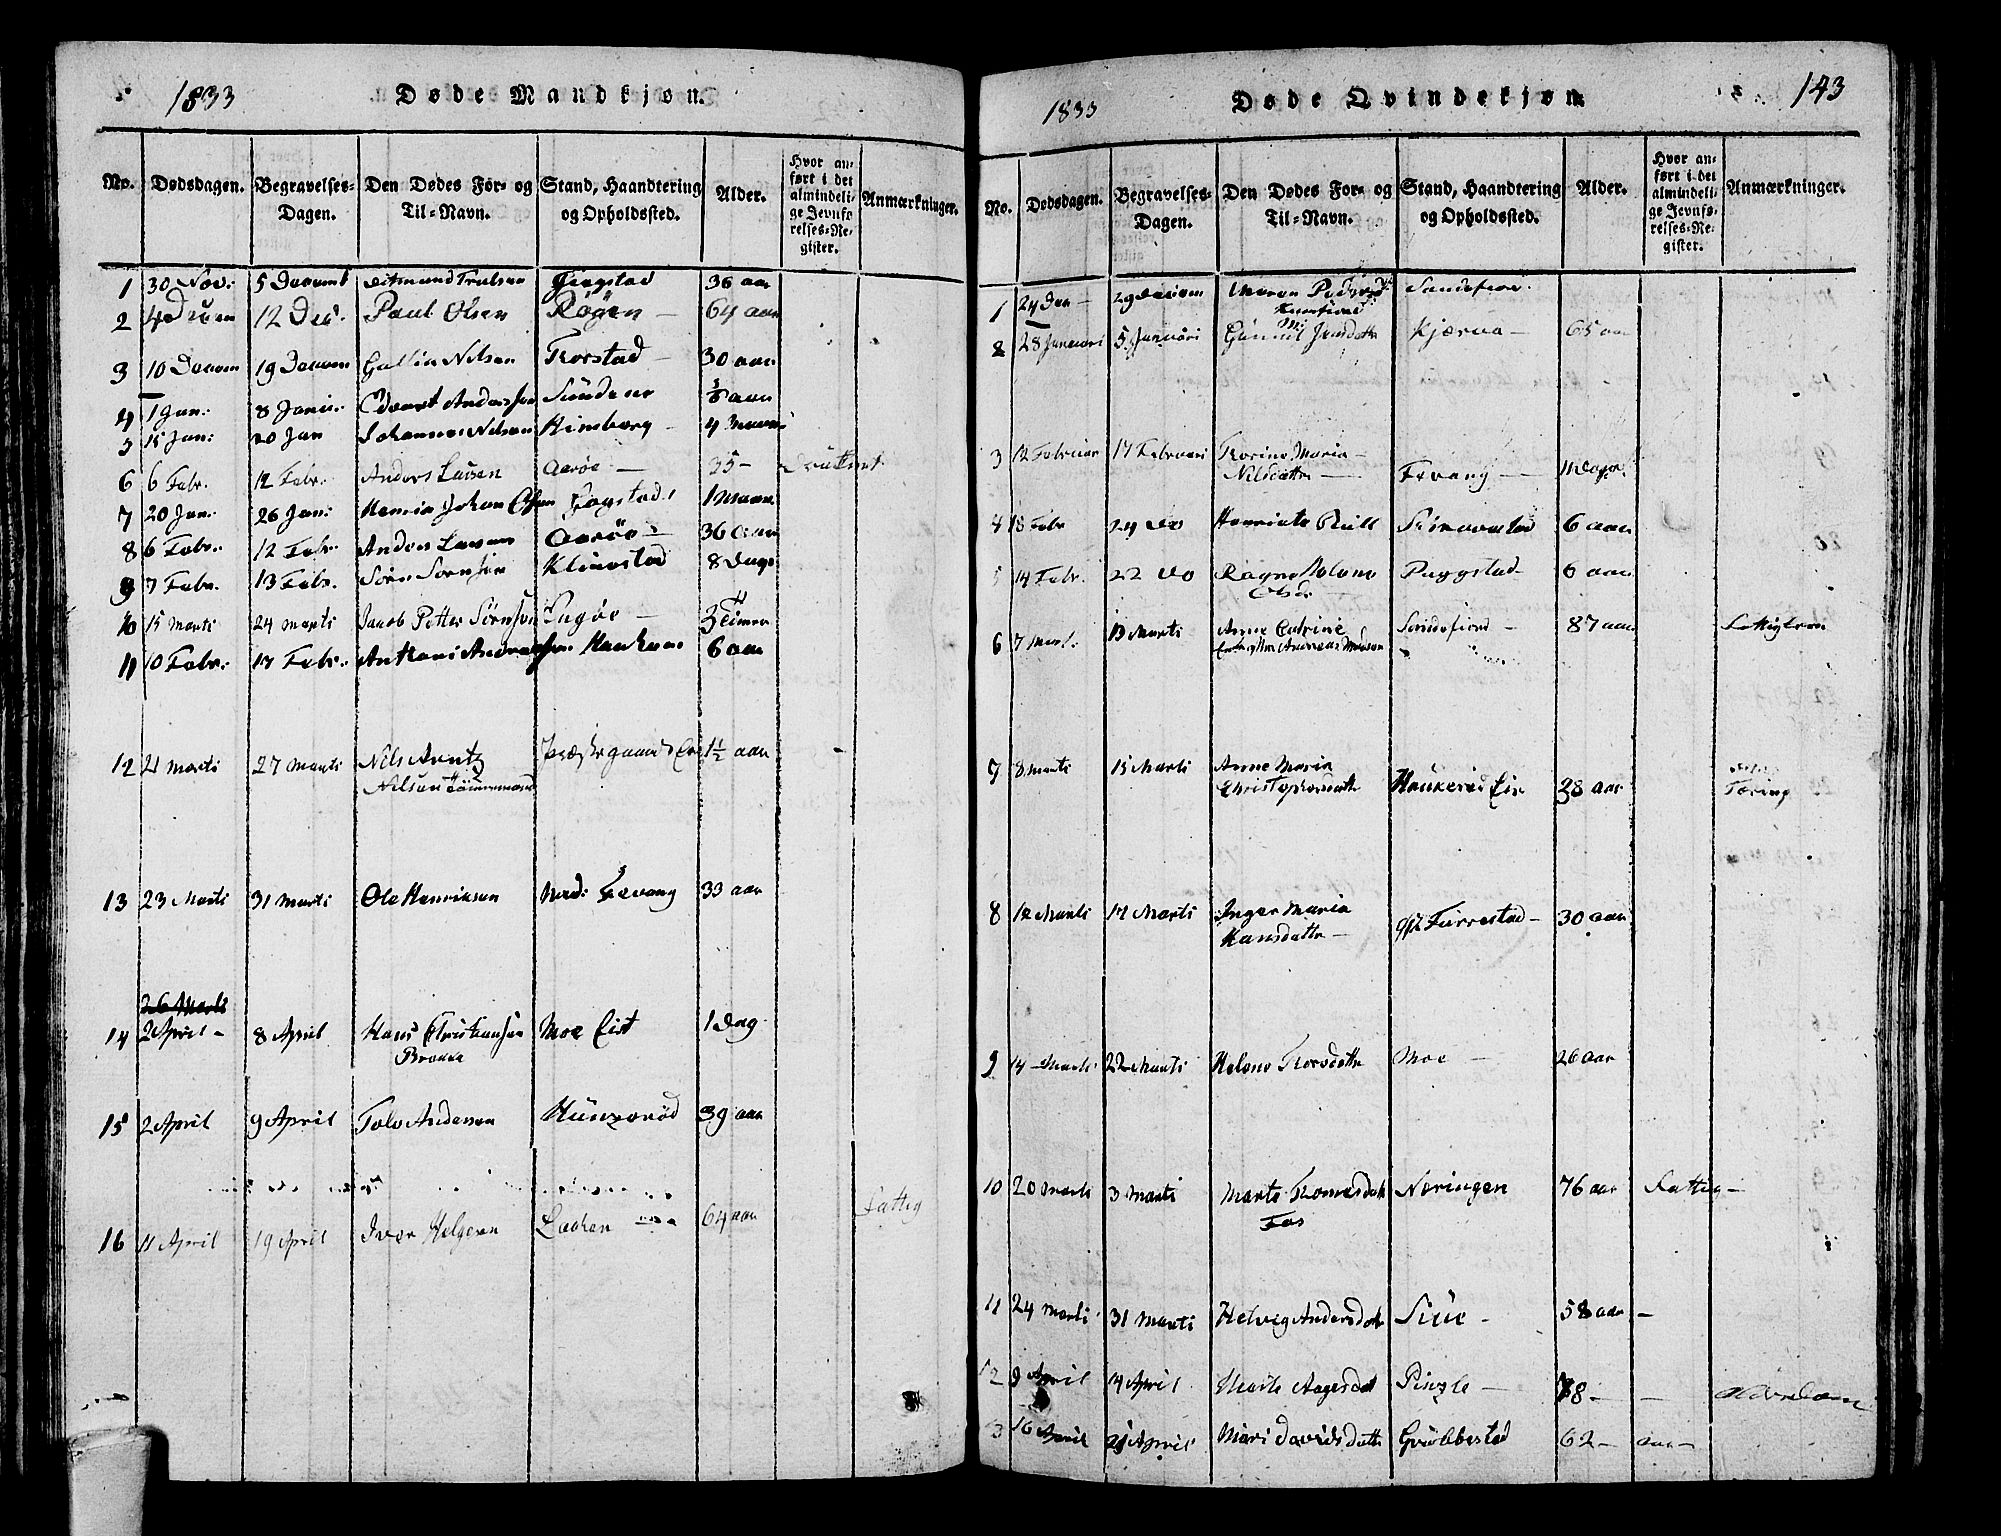 1833 Døde Mandkjøn.
No. Dødsdagen. Begravelses-Dagen. Den Dødes For- og Til-Navn. Stand, Haandtering og Opholdssted. Alder. Hvor anført i det almindelige Jevnførelses-Register. Anmærkninger.
1 30 Nov. 5 Decembr Trulsen 36 aar
2 4 Decem 12 Dec. Paul Olsen Røgen 64 aar
3 10 Decem 19 Decem Nilsen Korstad 30 aar
4 1 Jan: 8 Janu: Edvart Anderssen Sundene aar
5 15 Jan: 20 Jan Johannes Nilsen Himberg 4
6 6 Febr. 12 Febr. Anders Larsen Aarøe 35 - Druknet
7 20 Jan. 26 Jan: Henrik Johan Olsen Fogstad 1 Maan
8 6 Febr. 12 Febr. Anders Larsen Aarøe 36 aar
9 7 Febr. 13 Febr. Sørn Sørnsen Klinestad 8 Dage
10 15 Marti 24 Marti Jacob Petter Sørnsen Engøe 3 Timer
11 10 Febr. 17 Febr. Anthoni Andreassen Haukerø 6 aar
12 21 Marti 27 Marti Nils Arntz Præstegaards Eie 1½ aar
Nilsen Tømmermand
13 23 Marti 31 Marti Ole Henriksen Ned: Fevang 33 aar
26 Marti
14 2 April - 8 April Hans Christiansen Moe Eie 1 Dag
15 2 April 9 April Tolv Andersen Hunserød 39 aar
16 11 April 19 April Iver Helgesen 64 aar Fattig
1833 Døde Qvindekjøn 143
No. Dødsdagen. Begravelses-Dagen. Den Dødes For- og Til-Navn. Stand, Haandtering og Opholdssted. Alder. Hvor anført i det almindelige Jevnførelses-Register. Anmærkninger.
1 24 Dec - 29 Decem Maren Sandefior.
2 28 Januari 5 Januari Gunnil Jensdatter Kjærra - 65 aar
3 12 Februar 17 Februari Karine Maria -
Nilsdatter - Fevang - 11 Dage
4 18 Febr 24 Do Henriete 6 aar
5 14 Febr. 22 Do Ragne Helene Puggstad 6 aar
Olsdr
6 7 Mart. 13 Marti Anne Catrine Sandefiord - 87 aar Fattiglem
Enke efter Andreas
7 8 Marti 15 Marti Anne Maria
Christophersdatter Haukerød Eie 28 aar Tæring
8 12 Marti 17 Marti Inger Maria
Hansdatter - Furrestad - 30 aar
9 14 Marti 22 Marti Helene Thorsdatter Moe - 26 aar
10 20 Marti 3 Marti Marte Thomesdatter Næringen 76 aar Fattig -
Fos
11 24 Marti 31 Marti Helvig Andersdatter Siue - 58 aar -
12 9 April 14 April Marte Aagesdatter Pinsle - 88 - -
13 16 April 21 April Mari Davidsdatter Grubbestad 62 - aar -